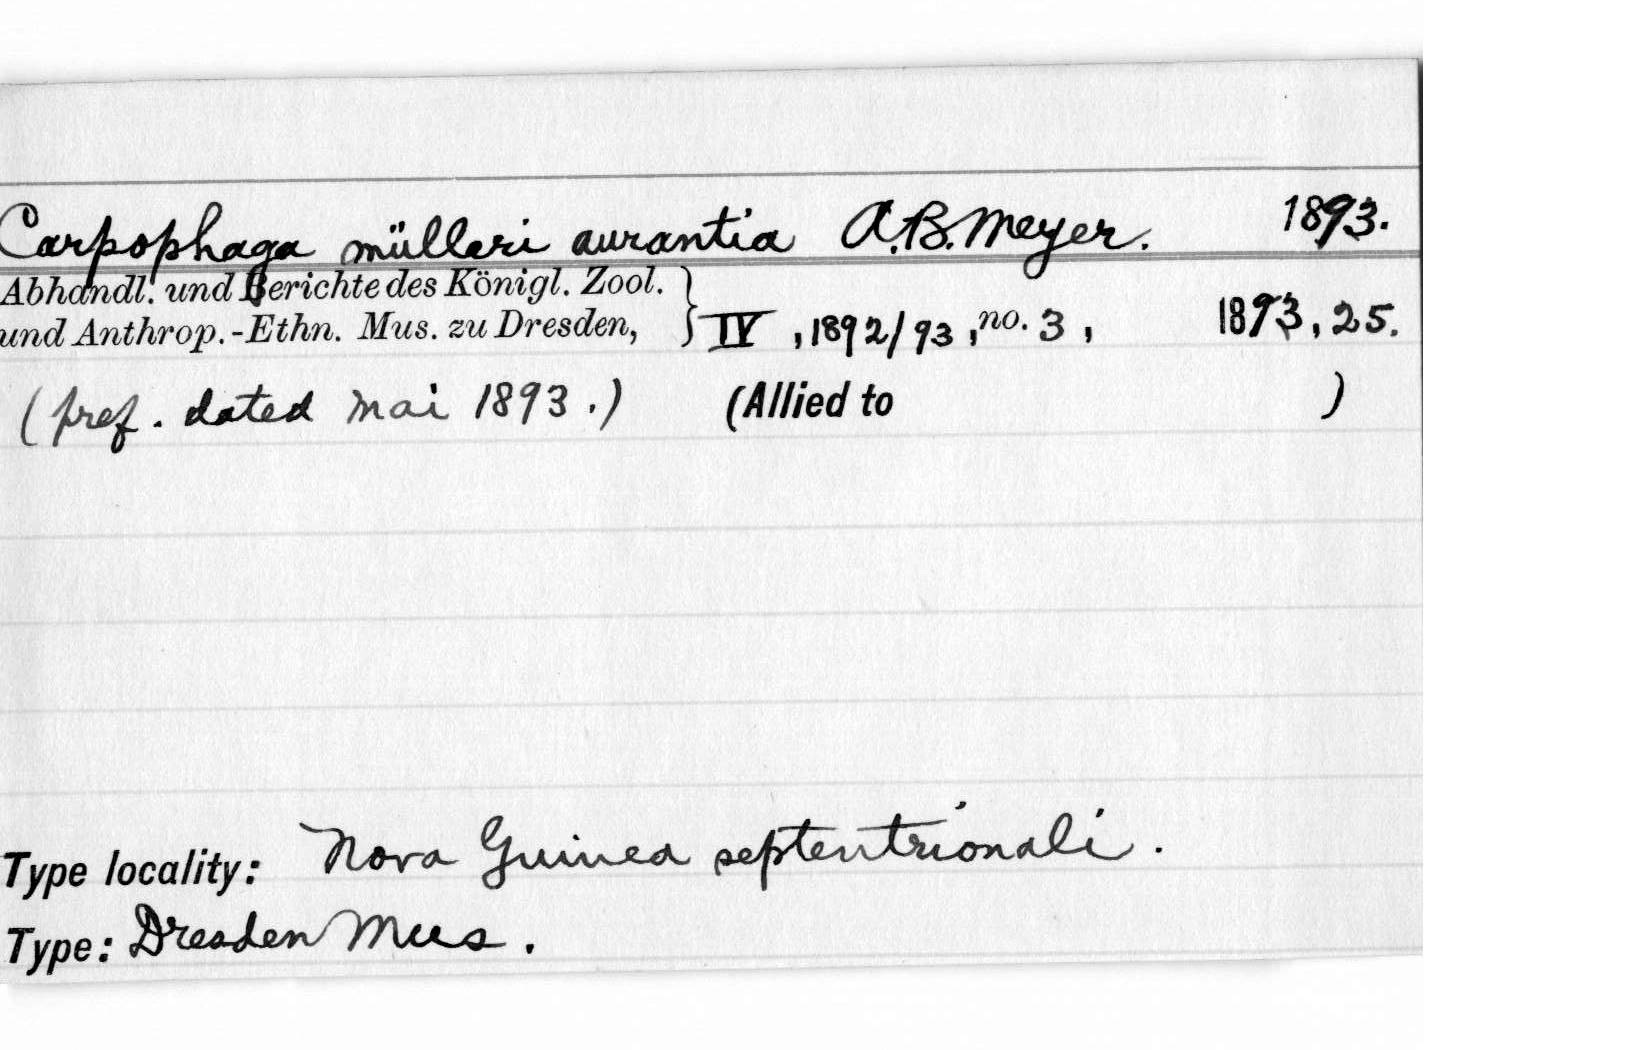 Carpophaga mülleri aurantia A.B. Meyer. 1893.
Abhandl. und Berichte des Königl. Zool.
und Anthrop.-Ethn. Mus. zu Dresden, } IV, 1892/93, no. 3, 1893, 25.
(pref. dated Mai 1893.) (Allied to )
Type locality: Nova Guinea septentrionali.
Type: Dresden Mus.